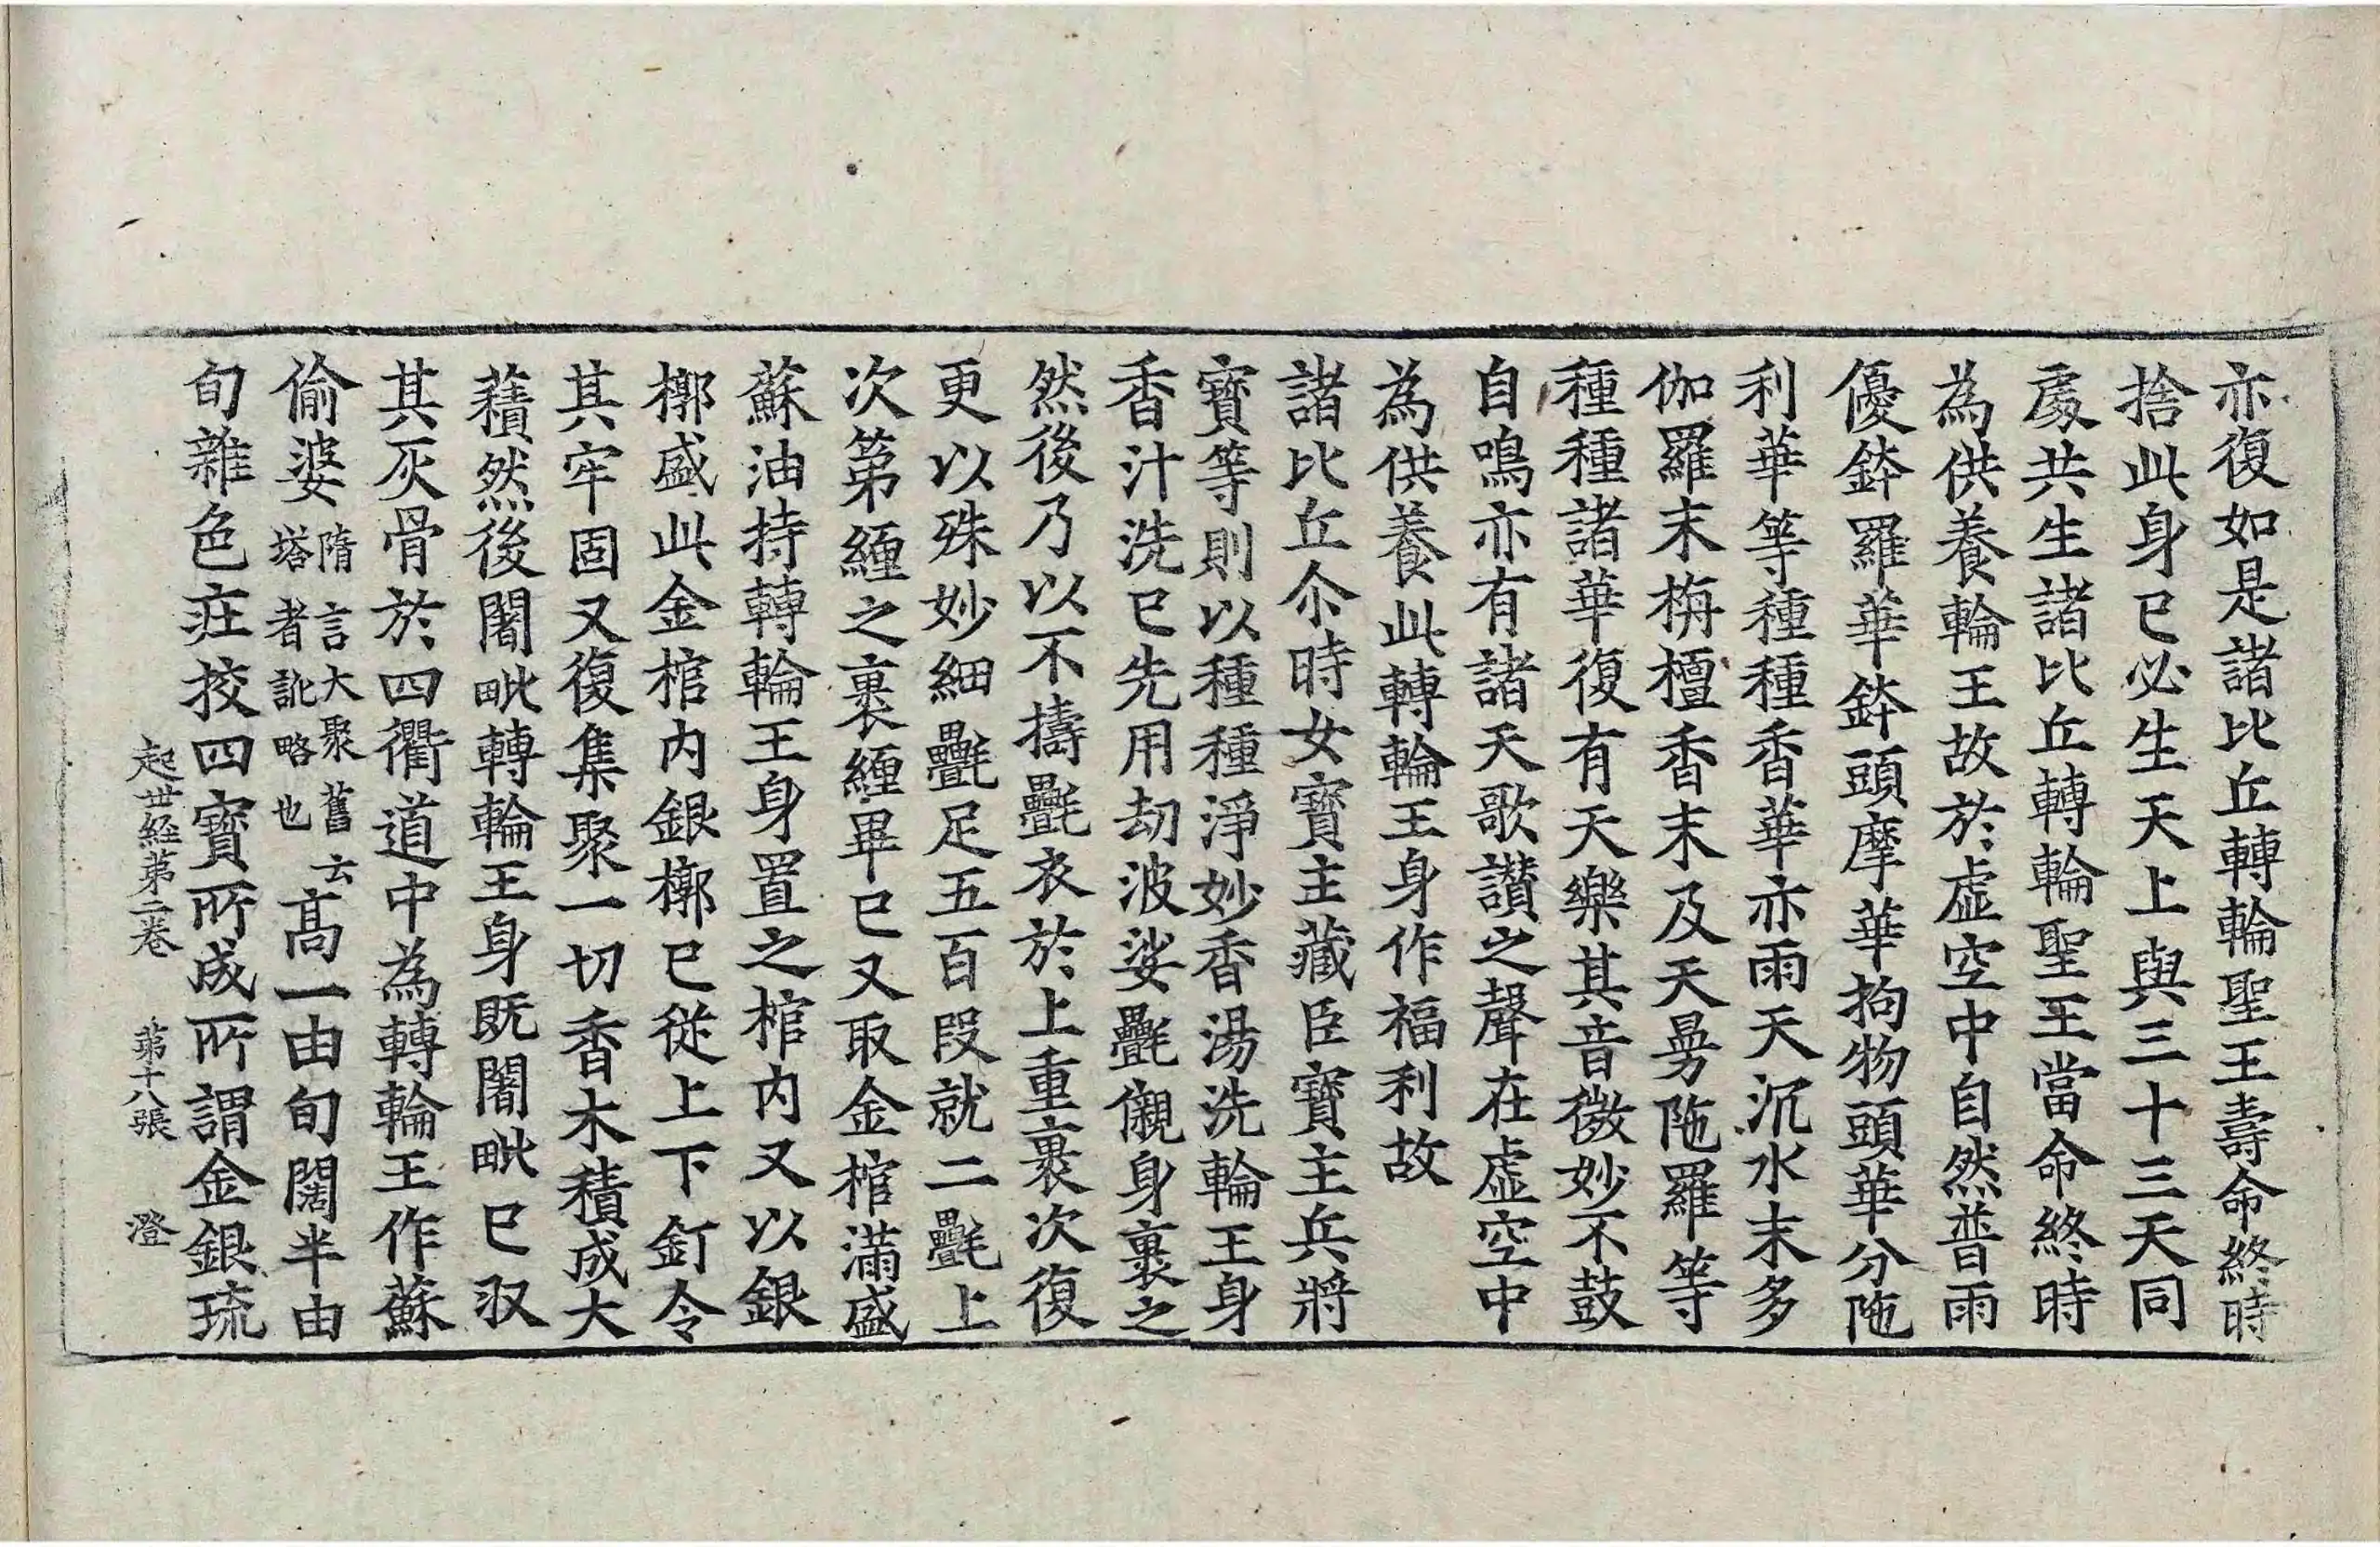 亦復如是諸比丘轉輪聖王壽命終時
捨此身已必生天上與三十三天同
處共生諸比丘轉輪聖王當命終時
為供養輪王故於虛空中自然普雨
優鉢羅華鉢頭摩華拘物頭華分陁
利華等種種香華亦雨天沉水末多
伽羅末栴檀香末及天曼陁羅等
種種諸華復有天樂其音微妙不鼓
自鳴亦有諸天歌讃之聲在虛空中
為供養此轉輪王身作福利故
諸比丘尒時女寳主藏臣寳主兵將
寳等則以種種淨妙香湯洗輪王身
香汁洗已先用劫波娑㲲儭身裹之
然後乃以不擣㲲衣於上重裹次復
更以殊妙細㲲足五百段就二㲲上
次第纏之裹纏畢已又取金棺滿盛
蘇油持轉輪王身置之棺內又以銀
槨盛此金棺內銀槨已從上下釘令
其牢固又復集聚一切香木積成大
𧂐然後闍毗轉輪王身既闍毗已収
其灰骨於四衢道中為轉輪王作蘇
偷婆隋言大聚舊云塔者訛略也高一由旬闊半由
旬雜色庄挍四寳所成所謂金銀琉
起世經第二卷 第十八張 澄